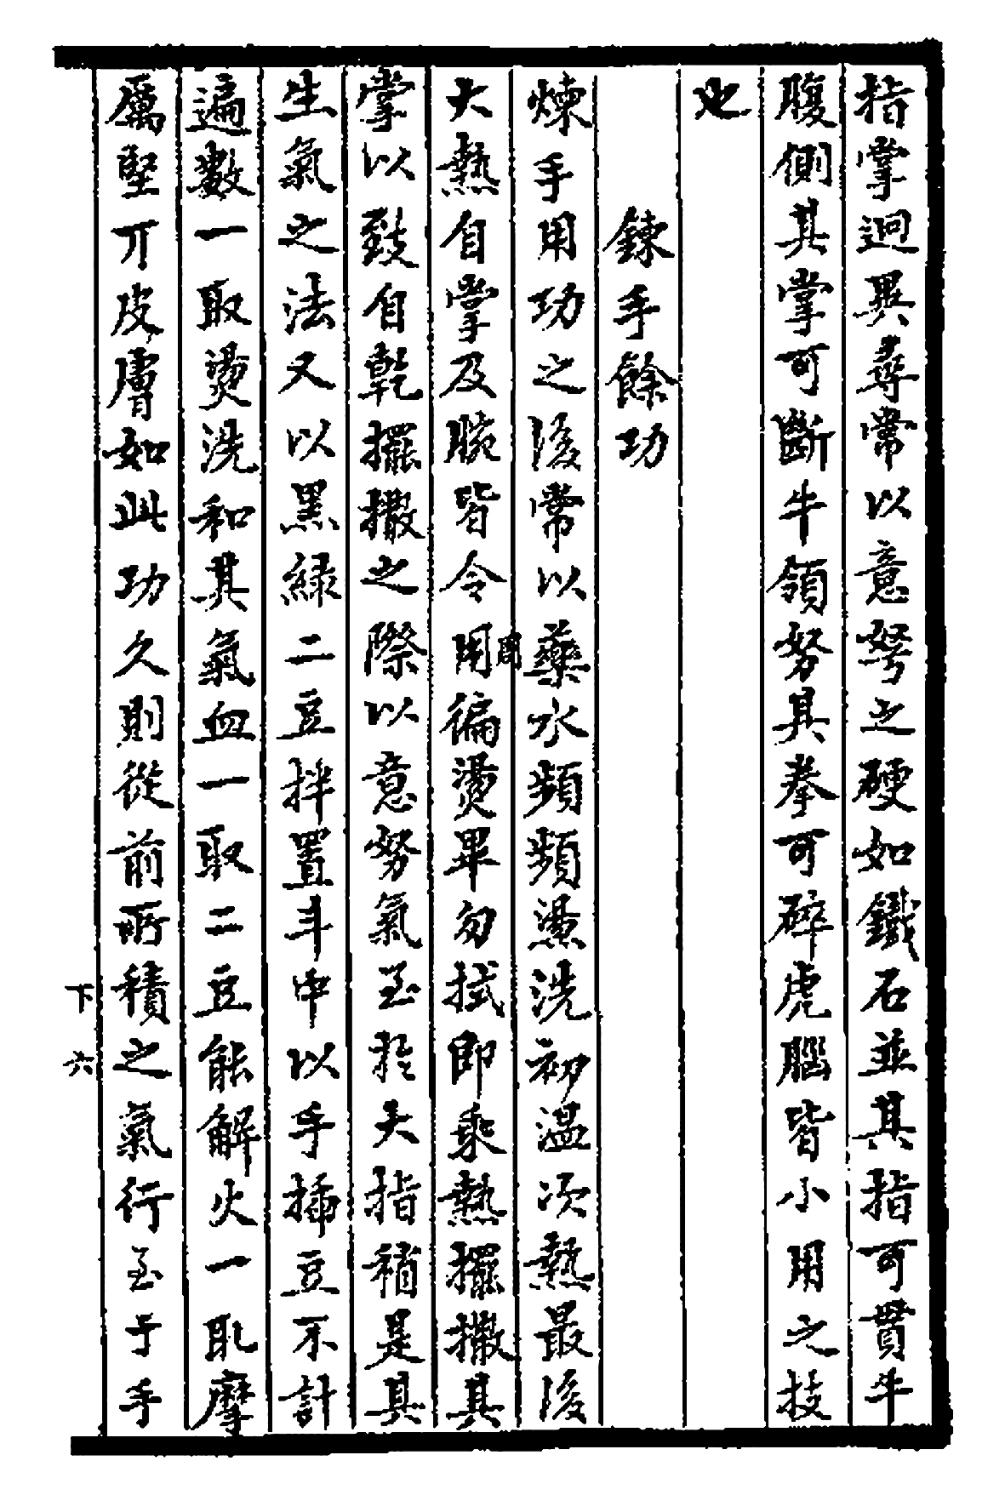 指掌迥異尋常以意努之硬如鐵石並其指可貫牛
腹側其掌可斷牛領努其拳可碎虎腦皆小用之技
也
鍊手餘功
煉手用功之後常以藥水頻頻燙洗初溫次熱最後
大熱自掌及腕皆令用周徧燙畢勿拭即乘熱擺撒其
掌以致自乾擺撒之際以意努氣至於大指稍是其
生氣之法又以黑綠二豆拌置斗中以手插豆不計
遍數一取燙洗和其氣血一取二豆能解火一取摩
厲堅丌皮膚如此功久則從前所積之氣行至于手
下六